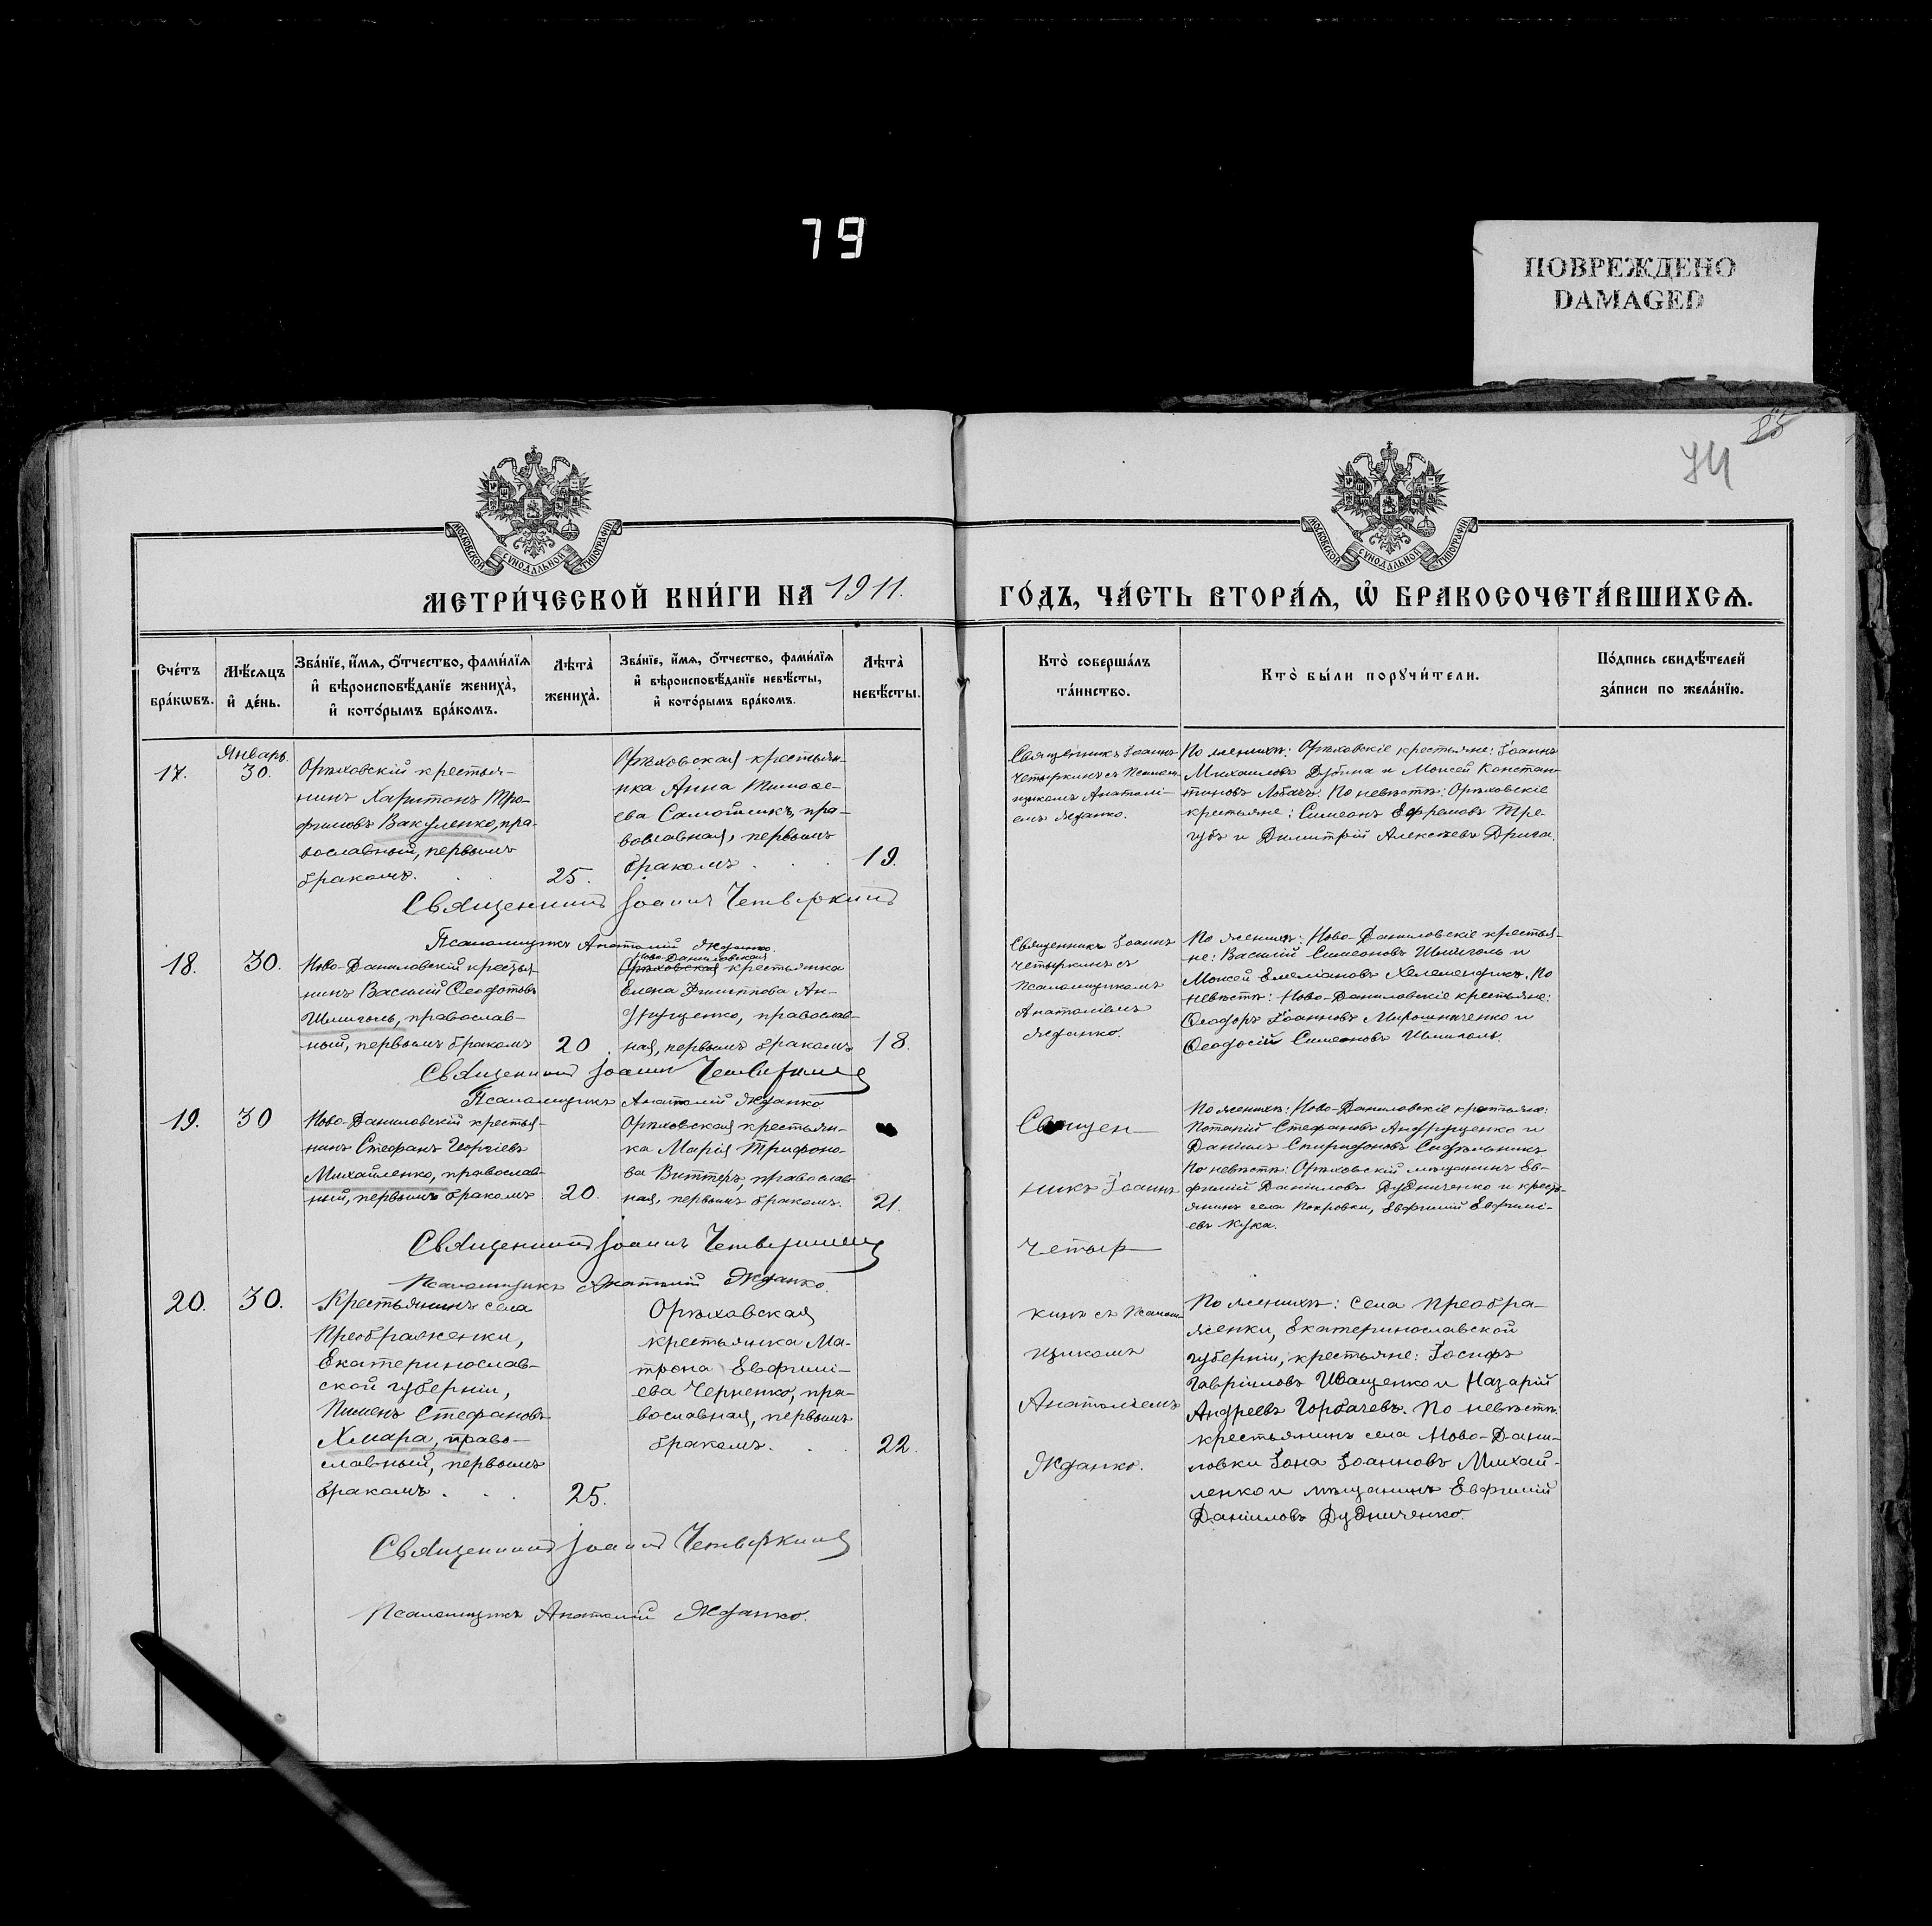 79
ПОВРЕЖДЕНО
DAMAGED
85
74
МОСКОВСКОЙ СѴНОДАЛЬНОЙ ТИПОГРАФІИ
МОСКОВСКОЙ СѴНОДАЛЬНОЙ ТИПОГРАФІИ
МЕТРИ́ЧЕСКОЙ КНИ́ГИ НА 1911.
ГО́ДЪ, ЧА́СТЬ ВТОРА́Ѧ, Ѡ҆ БРАКОСОЧЕТА́ВШИХСѦ.
Сче́тъ бра́кѡвъ.
Мѣ́сѧцъ и҆ де́нь.
Зва́нїе, и҆́мѧ, ѻ҆́тчество, фами́лїѧ
и҆ вѣроисповѣ́данїе жениха̀,
и҆ кото́рымъ бра́комъ.
Лѣта̀ жениха̀.
Зва́нїе, и҆́мѧ, ѻ҆́тчество, фами́лїѧ
и҆ вѣроисповѣ́данїе невѣ́сты,
и҆ кото́рымъ бра́комъ.
Лѣта̀ невѣ́сты.
Кто̀ соверша́лъ
та́инство.
Кто̀ бы́ли порꙋчи́тели.
По́дпись свидѣ́телей
за́писи по жела́нїю.
17.
Январь.
30.
Орѣховскій крестья-
нинъ Харитонъ Тро-
фимовъ Вакуленко, пра-
вославный, первымъ
бракомъ. . .
25.
Орѣховская крестьян-
ка Анна Тимоѳе-
ева Самойликъ, пра-
вославная, первымъ
бракомъ . . .
19.
Священникъ Іоаннъ
Четыркинъ съ Псалом-
щикомъ Анатолі-
емъ Жданко.
По женихѣ: Орѣховскіе крестьяне: Іоаннъ
Михаиловъ Дубина и Моисей Констан-
тиновъ Лобачъ. По невѣстѣ: Орѣховскіе
крестьяне: Симеонъ Ефремовъ Тре-
губъ и Димитрій Алексѣевъ Дрига.
Священникъ Іоаннъ Четыркинъ
Псаломщикъ Анатолій Жданко.
18.
30.
Ново-Даниловскій крестья-
нинъ Василій Ѳеодотовъ
Шмиголь, православ-
ный, первымъ бракомъ
20.
Ново-Даниловская
Орѣховская крестьянка
Елена Филиппова Ан-
друщенко, православ-
ная, первымъ бракомъ
18.
Священникъ Іоаннъ
Четыркинъ съ
Псаломщикомъ
Анатоліемъ
Жданко.
По женихѣ: Ново-Даниловскіе крестья-
не: Василій Симеоновъ Шмиголь и
Моисей Емеліановъ Хелемендикъ. По
невѣстѣ: Ново-Даниловскіе крестьяне:
Ѳеодоръ Іоанновъ Мирошниченко и
Ѳеодосій Симеоновъ Шмиголь.
Священникъ Іоаннъ Четыркинъ
Псаломщикъ Анатолій Жданко
19.
30
Ново-Даниловскій крестья-
нинъ Стефанъ Георгіевъ
Михайленко, православ-
ный, первымъ бракомъ
20.
Орѣховская крестьян-
ка Марія Трифоно-
ва Виттеръ, православ-
ная, первымъ бракомъ.
21.
Священ-
никъ Іоаннъ
Четыр-
кинъ съ Псалом-
щикомъ
Анатоліемъ
Жданко.
По женихѣ: Ново-Даниловскіе крестьяне:
Потапій Стефановъ Андрущенко и
Даніилъ Спиридоновъ Сидѣльникъ
По невѣстѣ: Орѣховскій мѣщанинъ Ев-
фимій Даніиловъ Дудниченко и кресть-
янинъ села Покровки, Евфимій Евфимі-
евъ Кука.
Священникъ Іоаннъ Четыркинъ
Псаломщикъ Анатолій Жданко.
20.
30.
Крестьянинъ села
Преображенки,
Екатеринослав-
ской губерніи,
Пименъ Стефановъ
Хмара, право-
славный, первымъ
бракомъ . . .
25.
Орѣховская
крестьянка Ма-
трона Евфимі-
ева Черненко, пра-
вославная, первымъ
бракомъ. . .
22.
По женихѣ: села Преобра-
женки, Екатеринославской
губерніи, крестьяне: Іосифъ
Гавріиловъ Иващенко и Назарій
Андреевъ Горбачевъ. По невѣстѣ:
крестьянинъ села Ново-Дани-
ловки Іона Іоанновъ Михай-
ленко и мѣщанинъ Евфимій
Даніиловъ Дудниченко.
Священникъ Іоаннъ Четыркинъ
Псаломщикъ Анатолій Жданко.